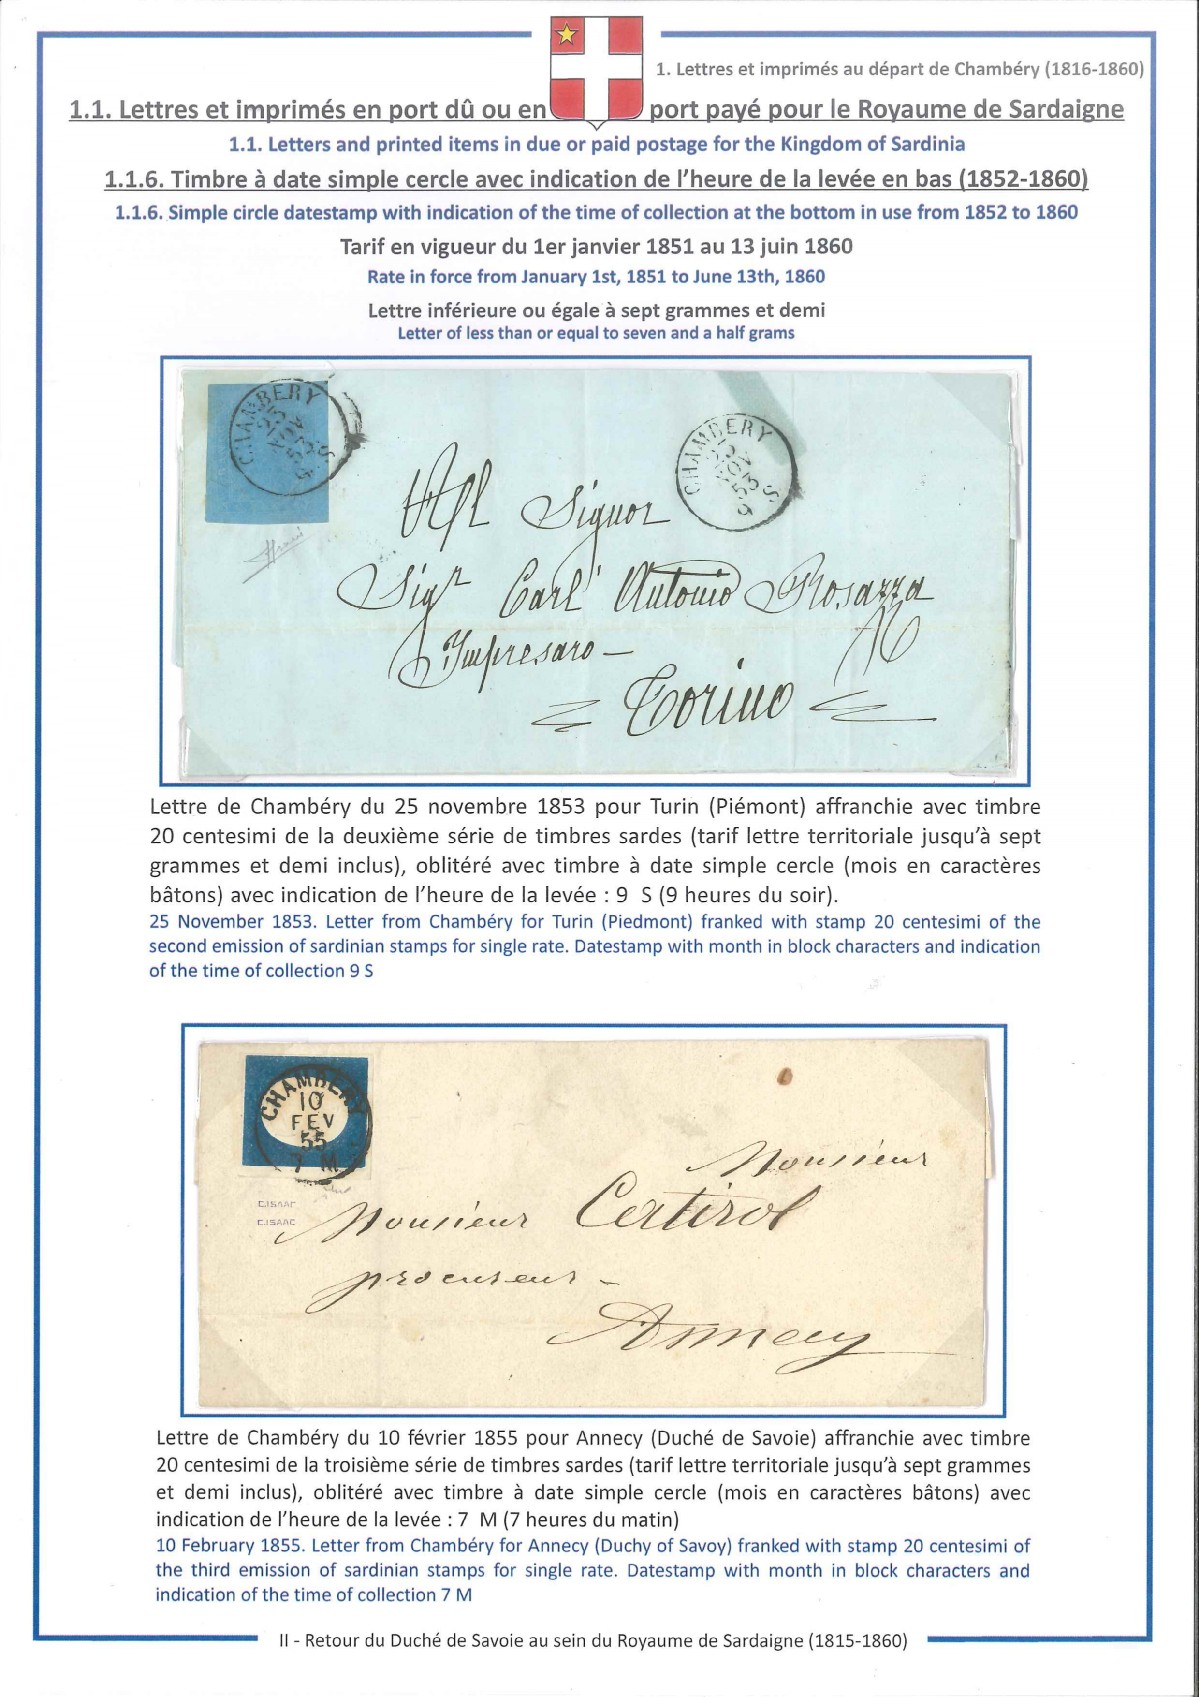 1. Lettres et imprimés au départ de Chambéry (1816-1860)
1.1. Lettres et imprimés en port dû ou en port payé pour le Royaume de Sardaigne
1.1. Letters and printed items in due or paid postage for the Kingdom of Sardinia
1.1.6. Timbre à date simple cercle avec indication de l'heure de la levée en bas (1852-1860)
1.1.6. Simple circle datestamp with indication of the time of collection at the bottom in use from 1852 to 1860
Tarif en vigueur du 1er janvier 1851 au 13 juin 1860
Rate in force from January 1st, 1851 to June 13th, 1860
Lettre inférieure ou égale à sept grammes et demi
Letter of less than or equal to seven and a half grams
CHAMBERY
25
NOV
53
S
CHAMBERY
25
NOV
53
9 S
All Signor
Sigr Carl' Antonio Rosazza
Impresaro —
Torino
Lettre de Chambéry du 25 novembre 1853 pour Turin (Piémont) affranchie avec timbre
20 centesimi de la deuxième série de timbres sardes (tarif lettre territoriale jusqu'à sept
grammes et demi inclus), oblitéré avec timbre à date simple cercle (mois en caractères
bâtons) avec indication de l'heure de la levée : 9 S (9 heures du soir).
25 November 1853. Letter from Chambéry for Turin (Piedmont) franked with stamp 20 centesimi of the
second emission of sardinian stamps for single rate. Datestamp with month in block characters and indication
of the time of collection 9 S
CHAMBERY
10
FEV
55
7 M
C.ISAAC
C.ISAAC
Monsieur
Monsieur Certirol
procureur -
Annecy
Lettre de Chambéry du 10 février 1855 pour Annecy (Duché de Savoie) affranchie avec timbre
20 centesimi de la troisième série de timbres sardes (tarif lettre territoriale jusqu'à sept grammes
et demi inclus), oblitéré avec timbre à date simple cercle (mois en caractères bâtons) avec
indication de l'heure de la levée : 7 M (7 heures du matin)
10 February 1855. Letter from Chambéry for Annecy (Duchy of Savoy) franked with stamp 20 centesimi of
the third emission of sardinian stamps for single rate. Datestamp with month in block characters and
indication of the time of collection 7 M
II - Retour du Duché de Savoie au sein du Royaume de Sardaigne (1815-1860)